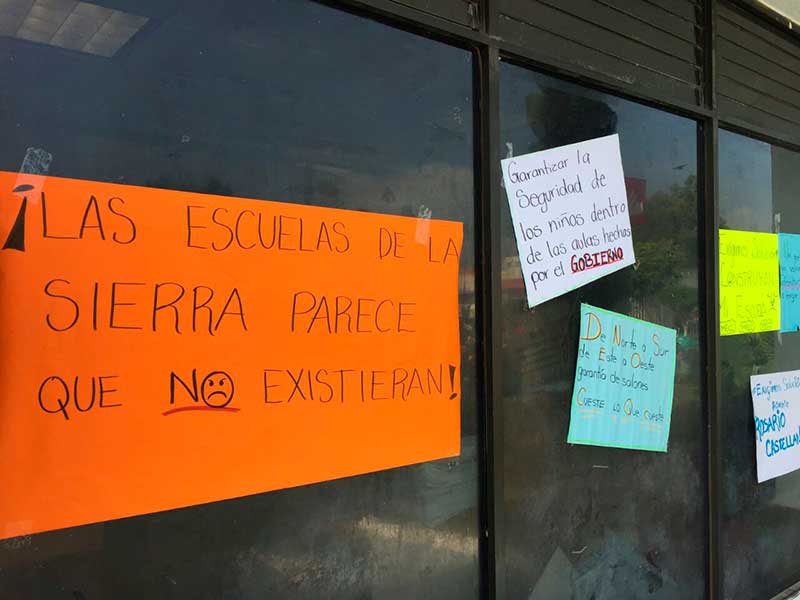 ¡LAS ESCUELAS DE LA
SIERRA PARECE
QUE NO EXISTIERAN!
Garantizar la
Seguridad de
los niños dentro
de las aulas hechas
por el GOBIERNO
De Norte a Sur
de Este a Oeste
garantía de salones
CUESTE LO QUE CUESTE
ROSARIO